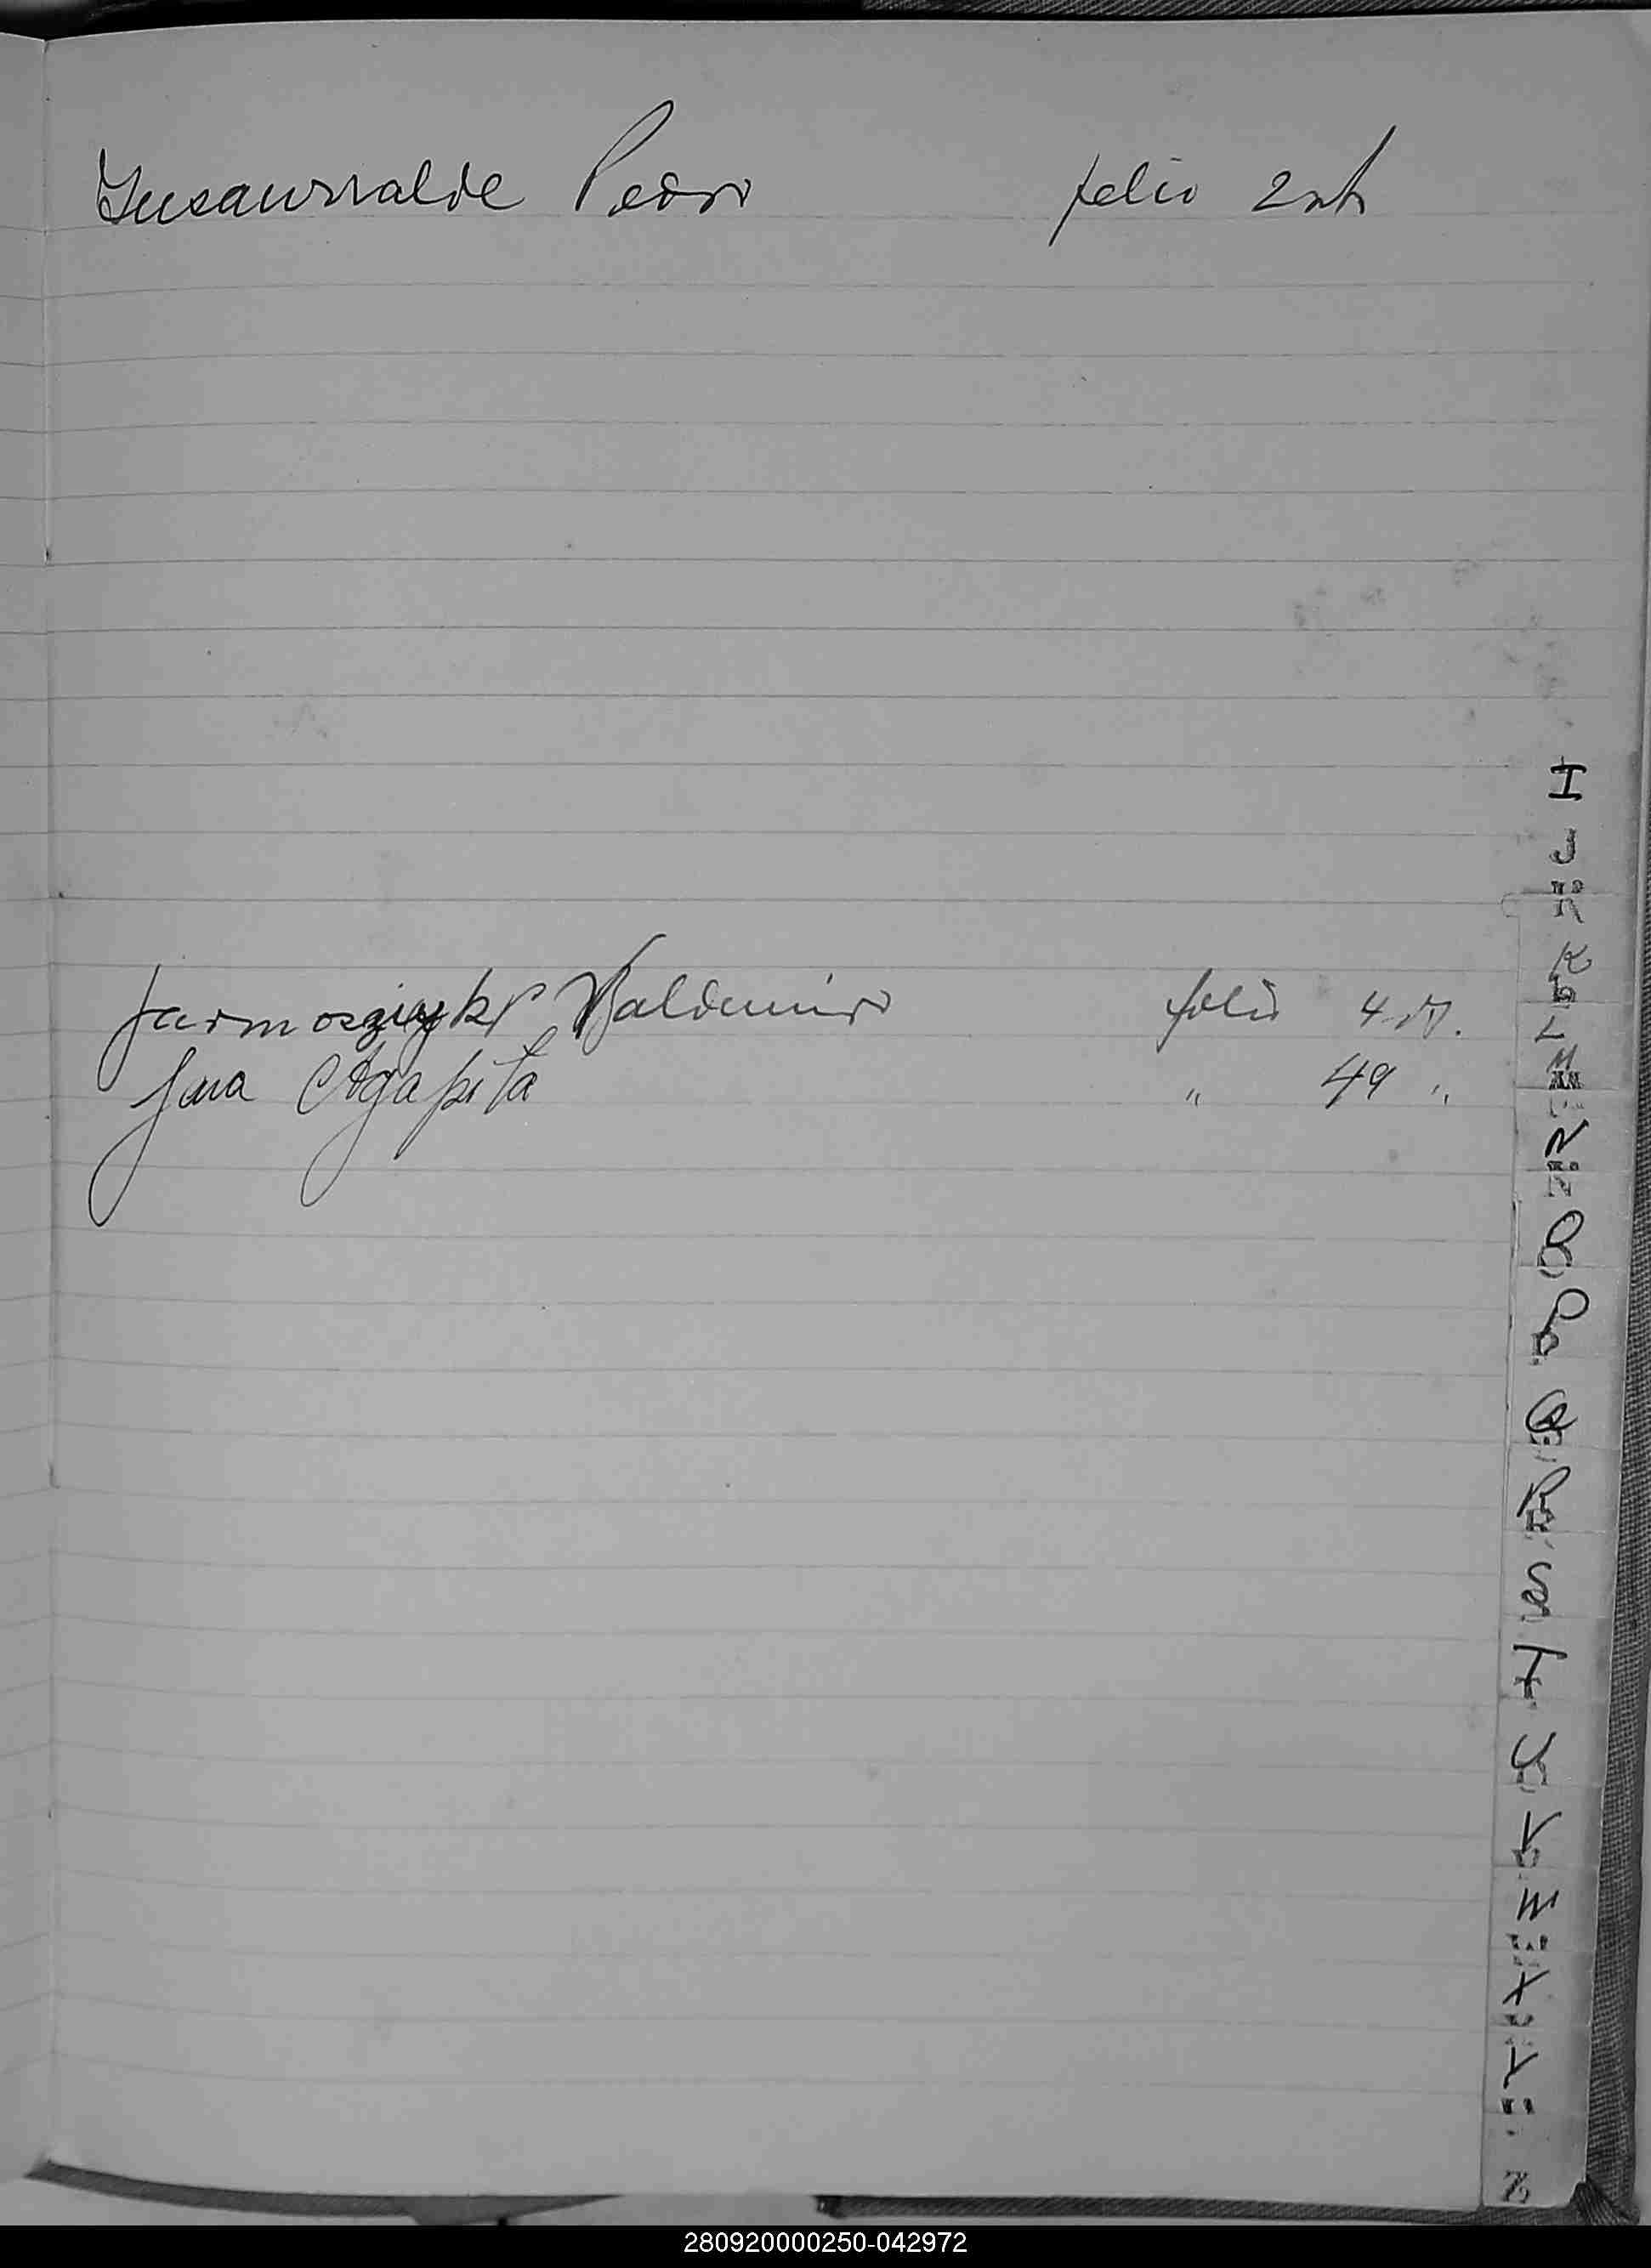 Insaurralde Pedro folio 2
Jarmoszinski Valdemiro folio 4
Jara Agapita " 49 "
I
J
K
L
M
N
O
P
Q
R
S
T
U
V
W
X
Y
Z
280920000250-042972